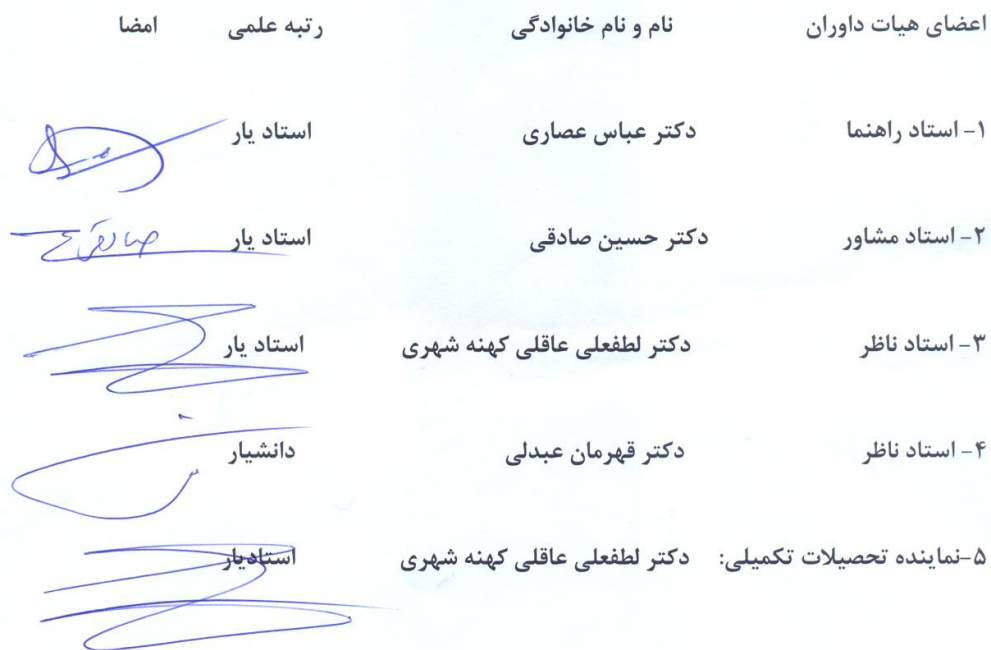 اعضای هیات داوران نام و نام خانوادگی رتبه علمی امضا
۱- استاد راهنما دکتر عباس عصاری استاد یار
۲- استاد مشاور دکتر حسین صادقی استاد یار
۳- استاد ناظر دکتر لطفعلی عاقلی کهنه شهری استاد یار
۴- استاد ناظر دکتر قهرمان عبدلی دانشیار
۵-نماینده تحصیلات تکمیلی: دکتر لطفعلی عاقلی کهنه شهری استادیار